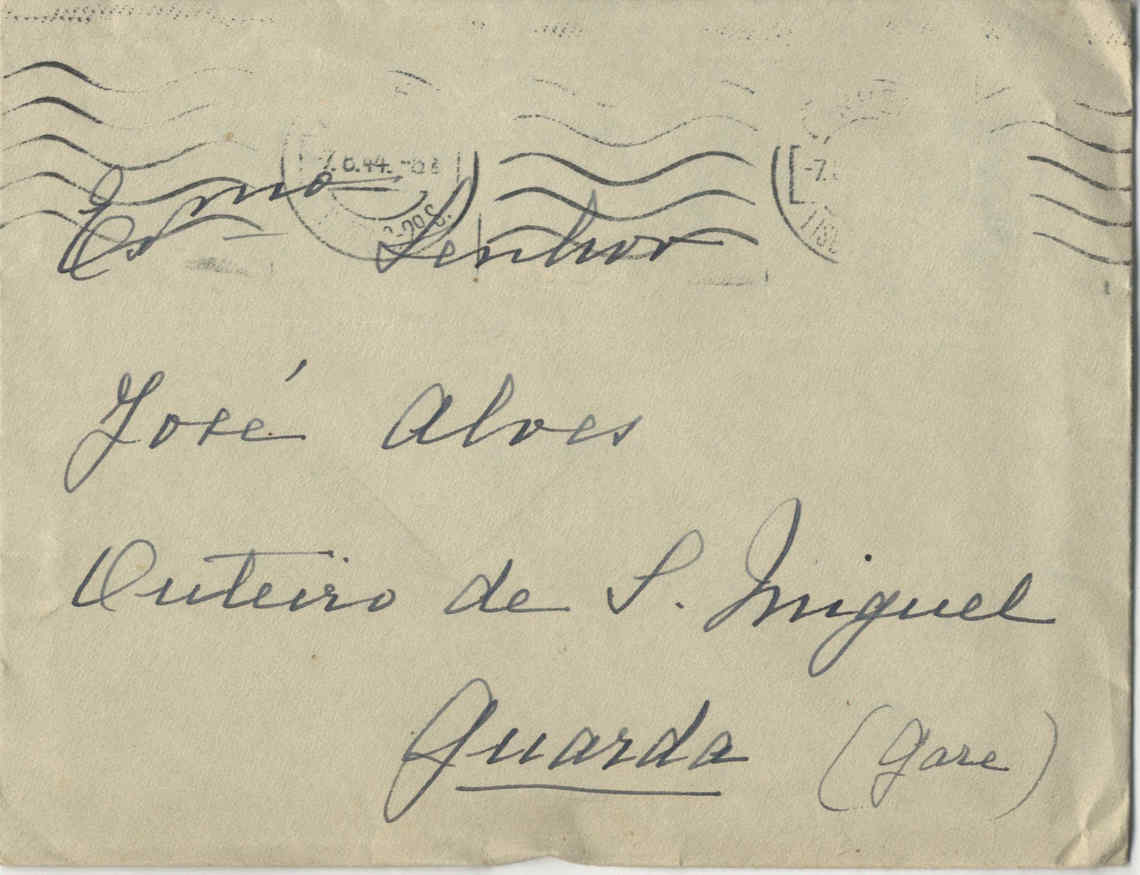 -7.6.44.
-7.
Exmo Senhor
José Alves
Outeiro de S. Miguel
Guarda (Gare)